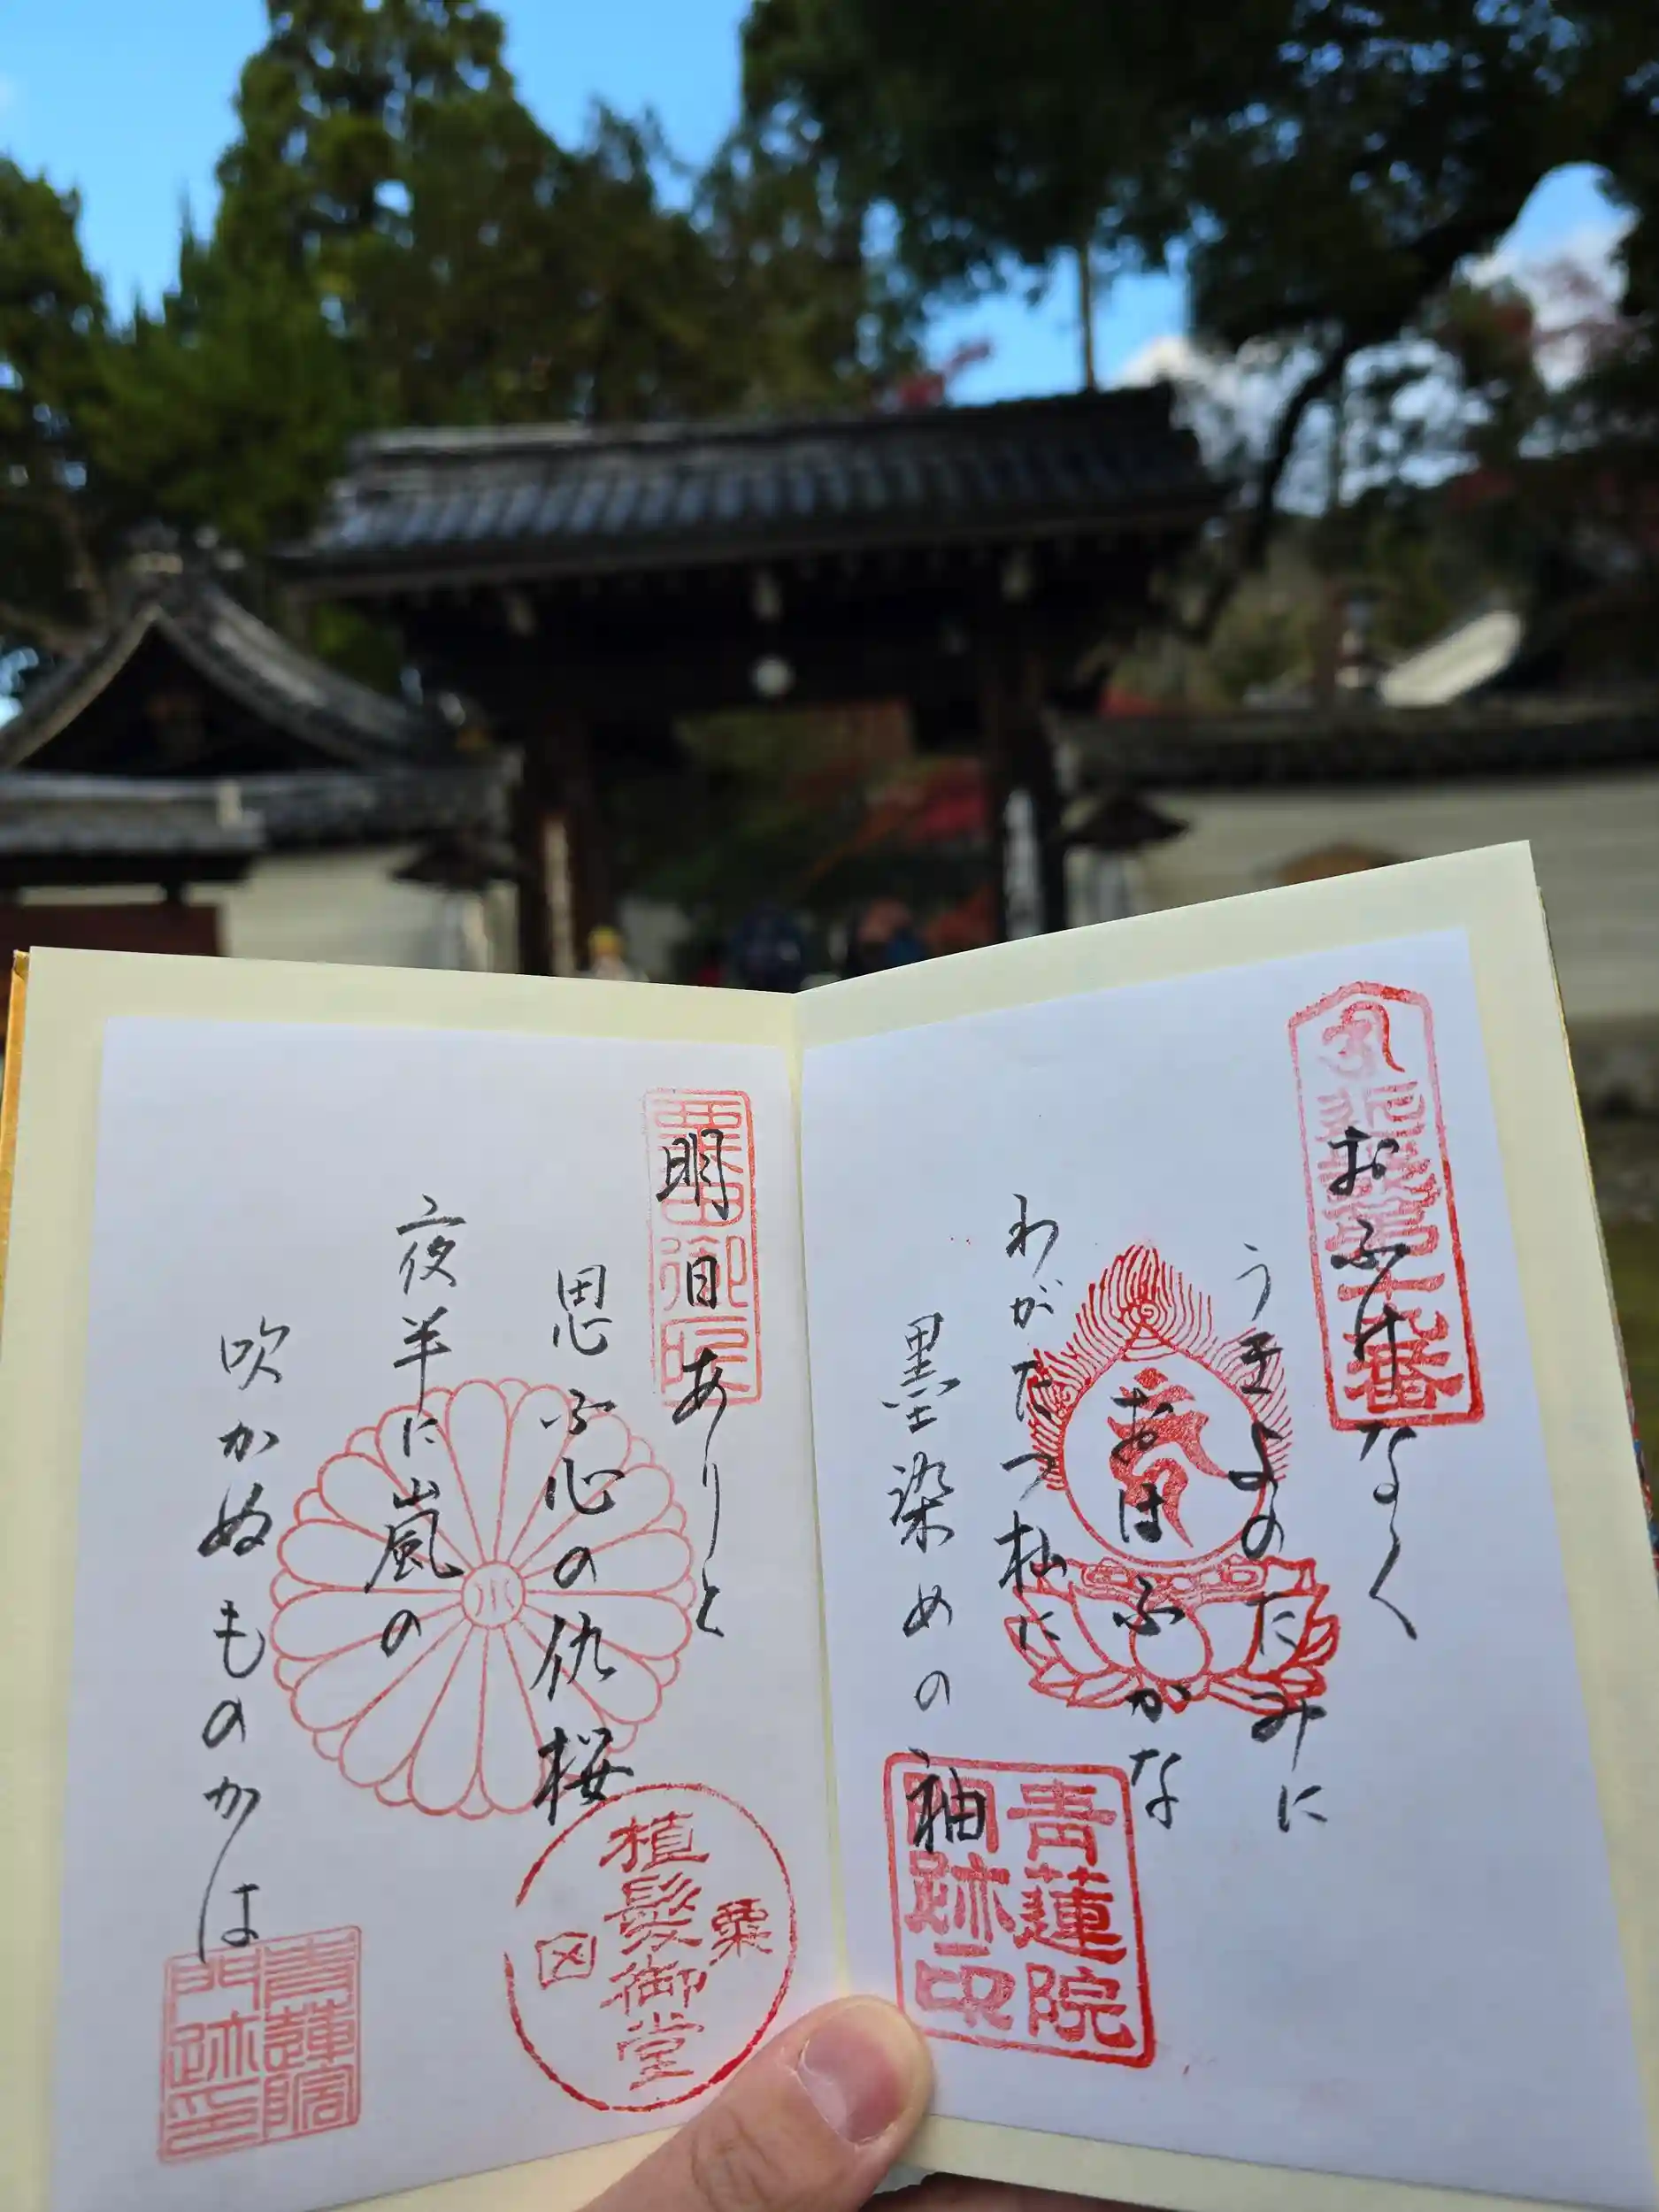 おふけなく
うき世のたみに
おほふかな
わがたつ杣に
墨染めの袖
青蓮院
門跡印
明日ありと
思ふ心の仇桜
夜半に嵐の
吹かぬものかは
粟田御所
植髪御堂
粟
青蓮院
門跡印